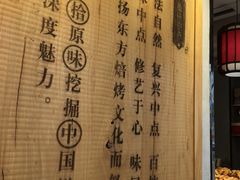 法自然 复兴中点 百
味中点 修艺于心 味
扬东方焙烤文化而
拾原味挖掘中国
深度魅力。